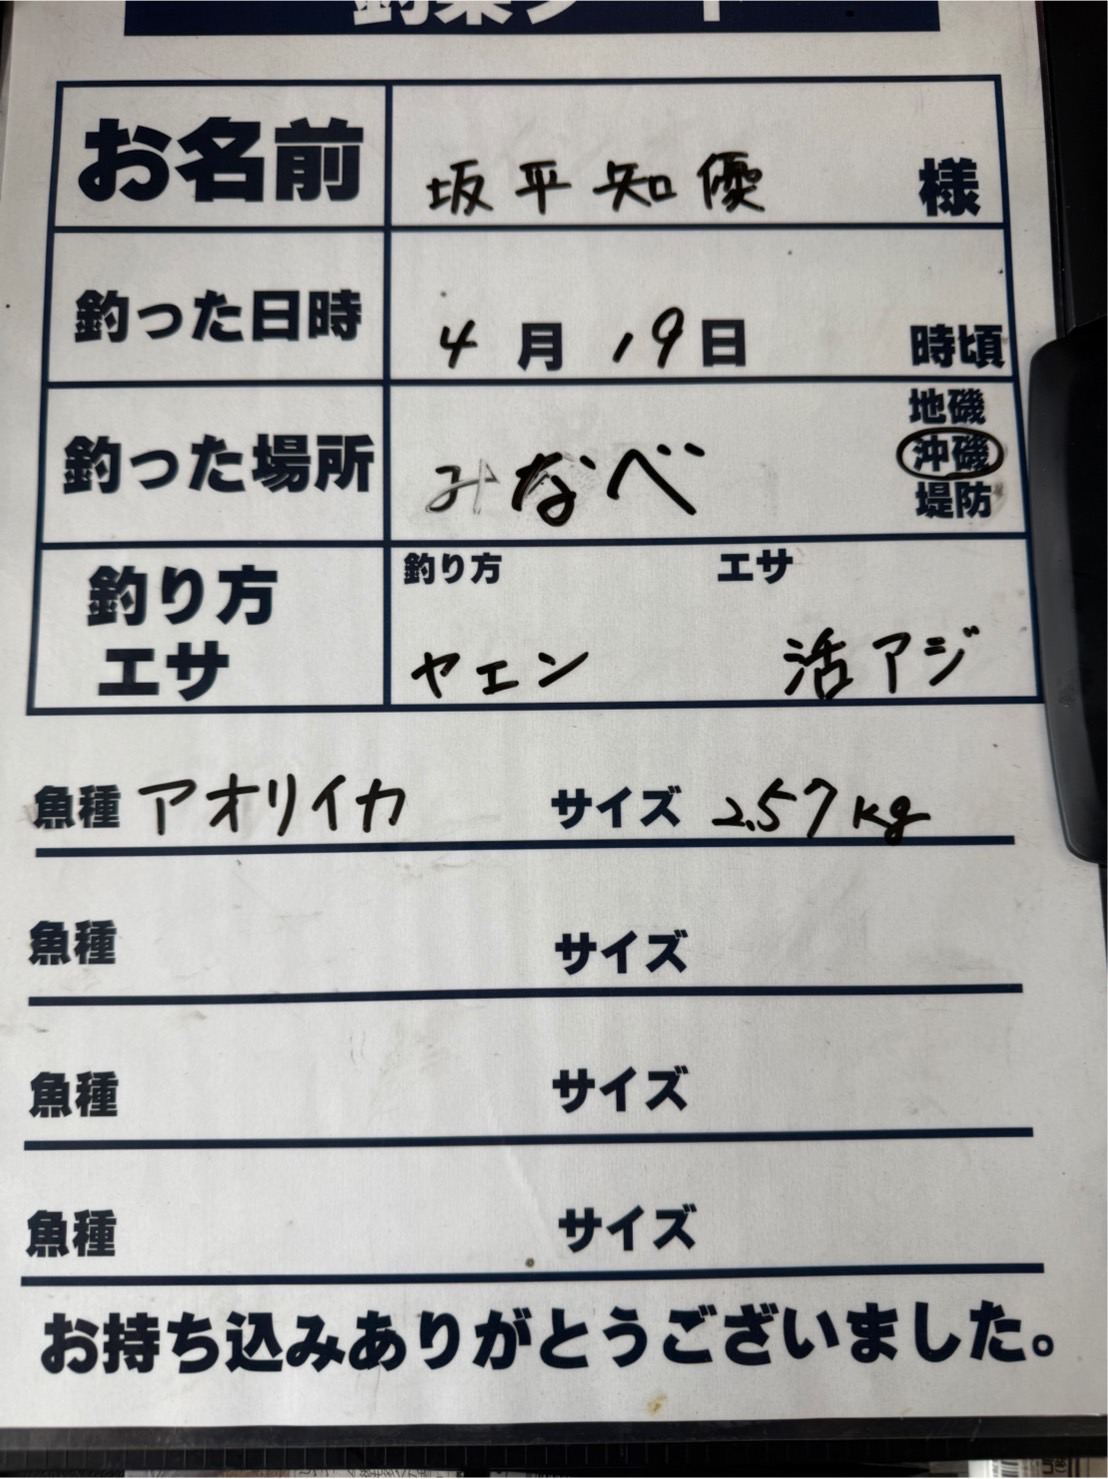 釣果シート
お名前 坂平知優 様
釣った日時 4月19日 時頃
釣った場所 みなべ 地磯
沖磯
堤防
釣り方 エサ
釣り方
エサ
ヤエン 活アジ
魚種 アオリイカ サイズ 2.57kg
魚種 サイズ
魚種 サイズ
魚種 サイズ
お持ち込みありがとうございました。